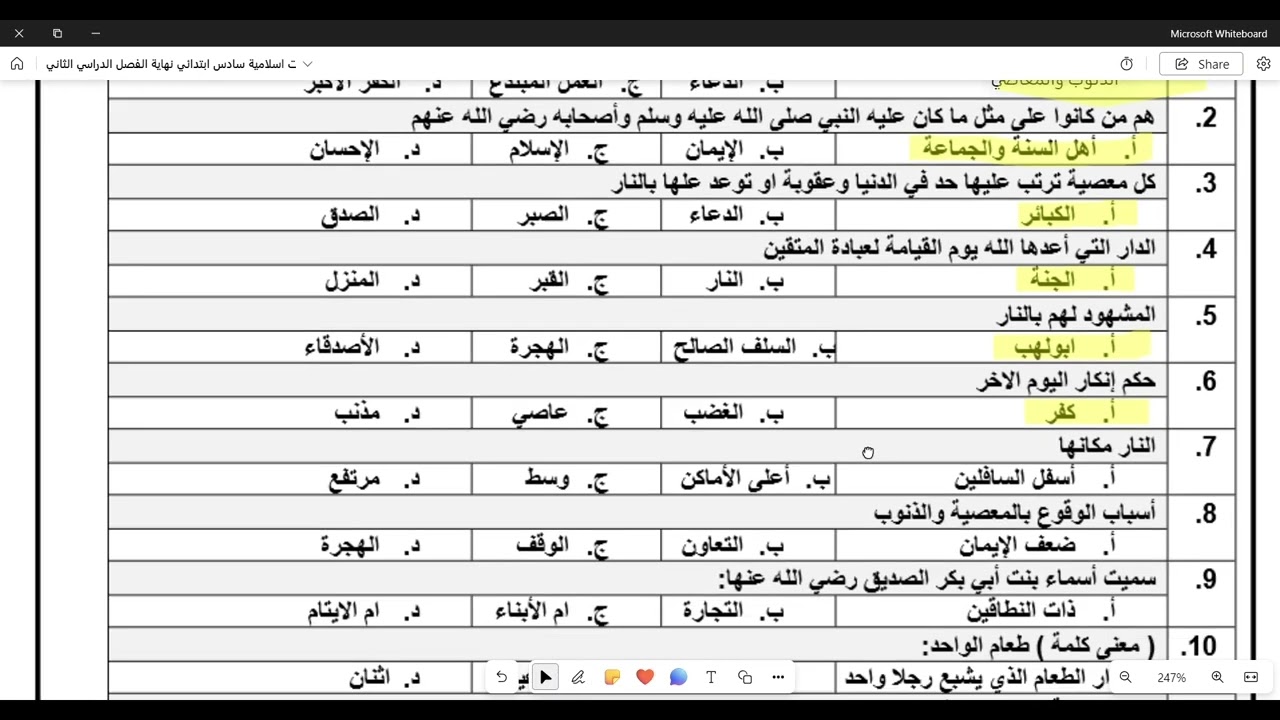 Microsoft Whiteboard
ت اسلامية سادس ابتدائي نهاية الفصل الدراسي الثاني
Share
الذنوب والمعاصي ب. الدعاء ج. العمل المبتدع د. الكفر الأكبر
2. هم من كانوا على مثل ما كان عليه النبي صلى الله عليه وسلم وأصحابه رضي الله عنهم
أ. أهل السنة والجماعة ب. الإيمان ج. الإسلام د. الإحسان
3. كل معصية ترتب عليها حد في الدنيا وعقوبة او توعد علها بالنار
أ. الكبائر ب. الدعاء ج. الصبر د. الصدق
4. الدار التي أعدها الله يوم القيامة لعبادة المتقين
أ. الجنة ب. النار ج. القبر د. المنزل
5. المشهود لهم بالنار
أ. ابولهب ب. السلف الصالح ج. الهجرة د. الأصدقاء
6. حكم إنكار اليوم الاخر
أ. كفر ب. الغضب ج. عاصي د. مذنب
7. النار مكانها
أ. أسفل السافلين ب. أعلى الأماكن ج. وسط د. مرتفع
8. أسباب الوقوع بالمعصية والذنوب
أ. ضعف الإيمان ب. التعاون ج. الوقف د. الهجرة
9. سميت أسماء بنت أبي بكر الصديق رضي الله عنها:
أ. ذات النطاقين ب. التجارة ج. ام الأبناء د. ام الايتام
10. ( معنى كلمة ) طعام الواحد:
الطعام الذي يشبع رجلا واحد د. اثنان
247%